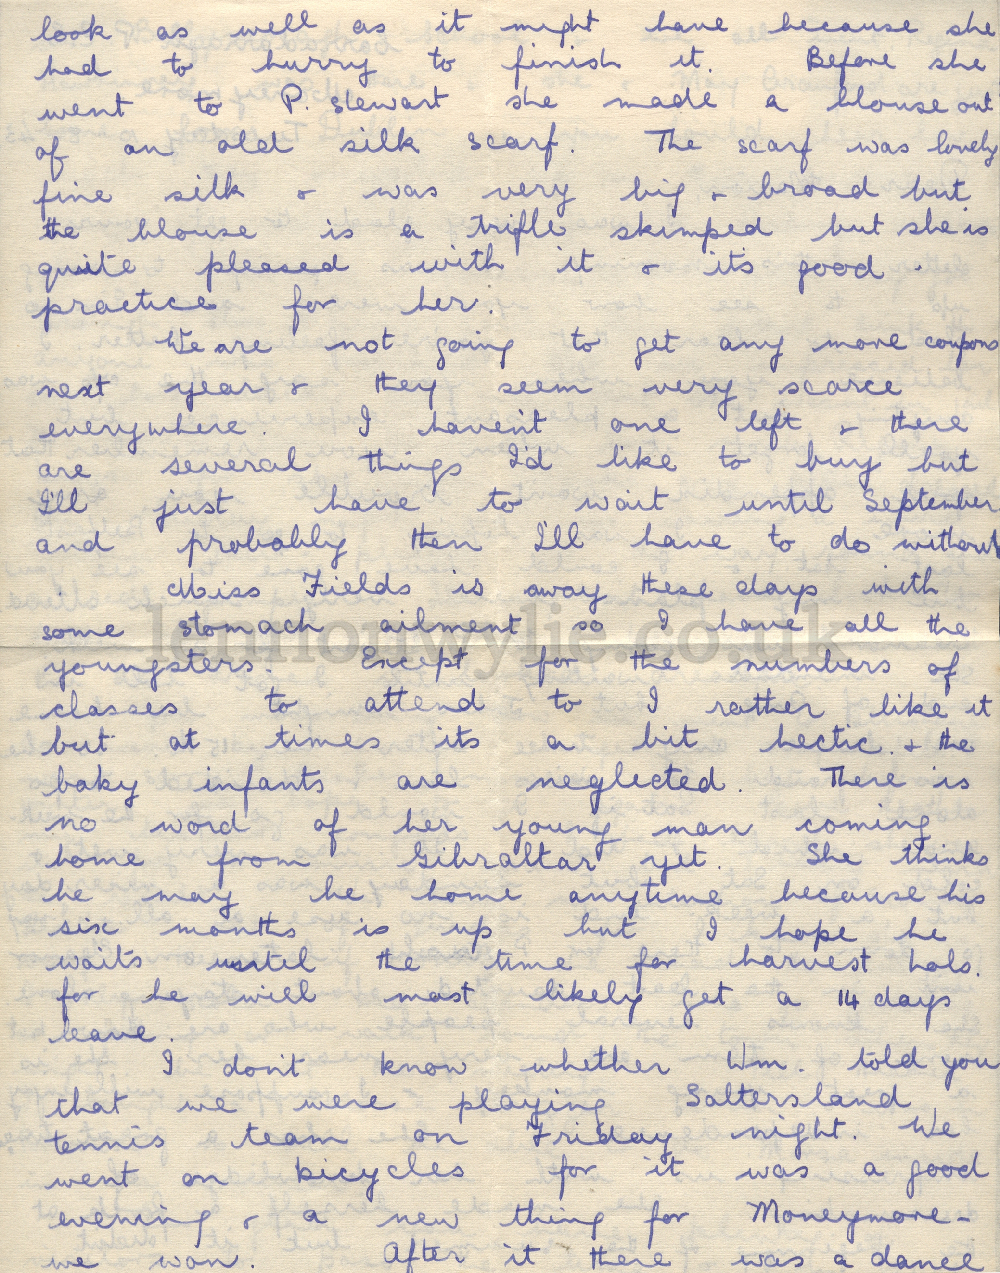 look as well as it might have because she
had to hurry to finish it. Before she
went to P. Stewart she made a blouse out
of an old silk scarf. The scarf was lovely
fine silk & was very big & broad but
the blouse is a trifle skimped but she is
quite pleased with it & its good
practice for her.
We are not going to get any more coupons
next year & they seem very scarce
everywhere. I havent one left & there
are several things I'd like to buy but
I'll just have to wait until September
and probably then I'll have to do without
Miss Fields is away these days with
some stomach ailment so I have all the
youngsters. Except for the numbers of
classes to attend to I rather like it
but at times its a bit hectic. & the
baby infants are neglected. There is
no word of her young man coming
home from Gibraltar yet. She thinks
he may be home anytime because his
six months is up but I hope he
waits until the time for harvest hols.
for he will most likely get a 14 days
leave.
I don't know whether Wm. told you
that we were playing Saltersland
tennis team on Friday night. We
went on bicycles for it was a good
evening & a new thing for Moneymore -
we won. After it there was a dance
lennonwylie.co.uk